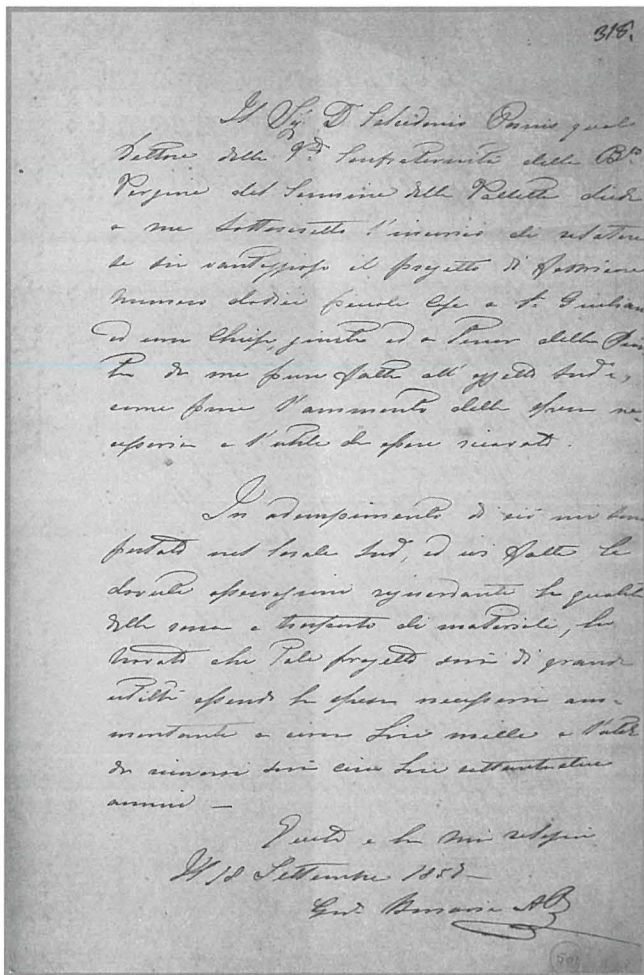 318.
Il Sig. D. Salvidonio Porris qual
Rettore della Vd. Confraternita della Bta
Vergine del Carmine della Valletta diede
a me sottoscritto l'incarico di relatare
se sia vantaggioso il progetto di fabbricare
numero dodici piccole case a S. Giuliano
ed una Chiesa giusta ed a tenor della Pian
ta da me pure fatta all'oggetto sud.,
come pure l'ammonto della spesa ne-
cessaria e l'utile da essere ricavato.
In adempimento di ciò mi sono
portato nel locale sud., ed ivi fatte le
dovute osservazioni riguardante la qualità
della rocca e trasporto di materiale, ho
trovato che tale progetto sarà di grande
utilità essendo la spesa necessaria am-
montante a circa Lire mille e l'utile
da ricavarsi sarà circa Lire settantadue
annui —
Questa è la mia relazione
Il 18 Settembre 1857 —
Bonavia